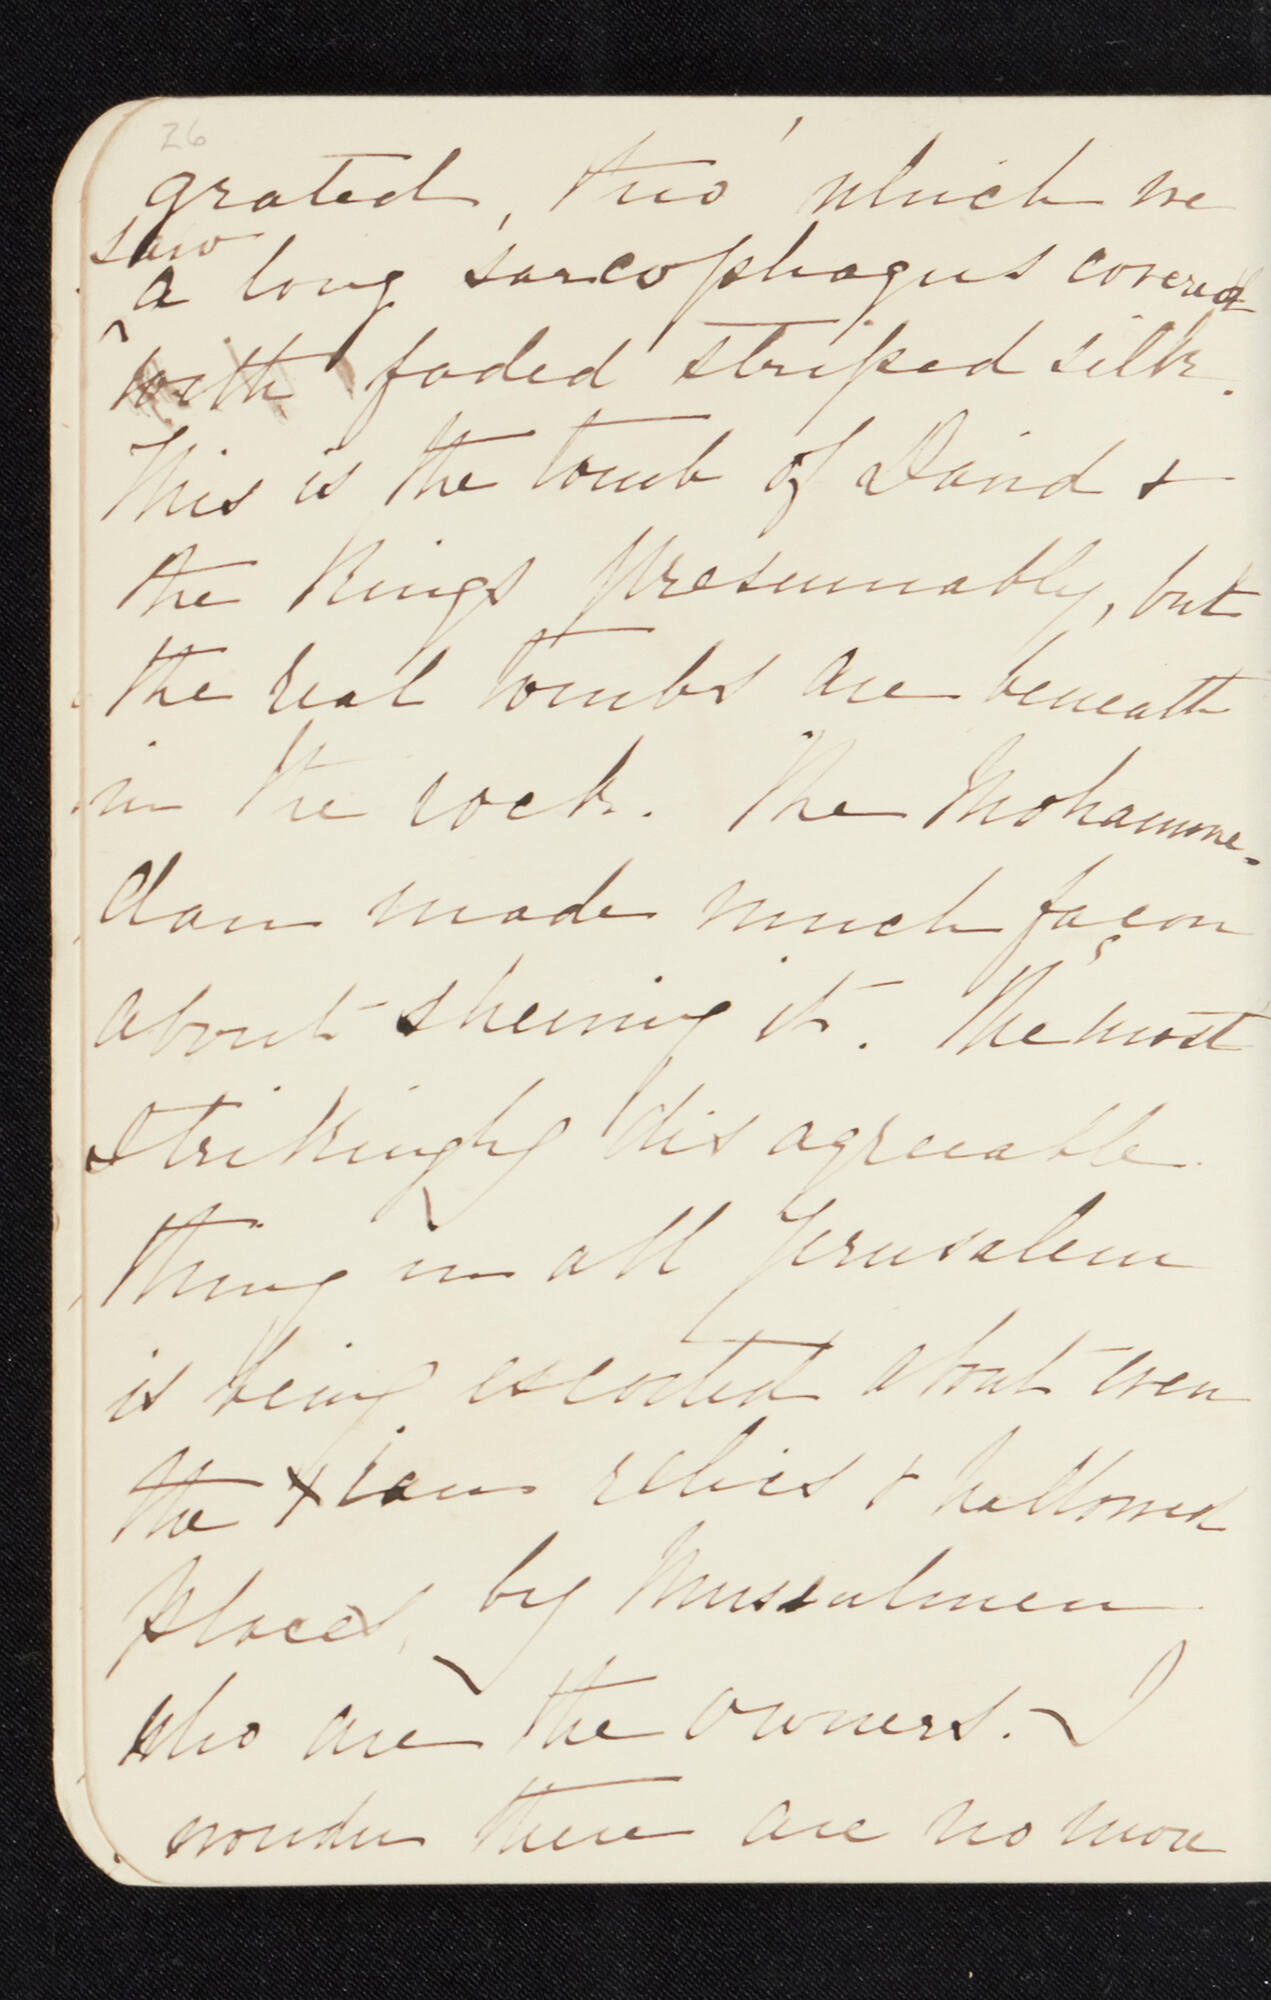 26
grated, thro' which we
saw
a long sarcophagus covered
with faded striped silk.
This is the tomb of David &
the Kings presumably, but
the real tombs are beneath
in the rock. The Mohamme-
dan made much façon
about shewing it. The most
strikingly disagreeable
thing in all Jerusalem
is being escorted about even
the Xian relics & hallowed
places, by Mussulmen
who are the owners. - I
wonder there are no more